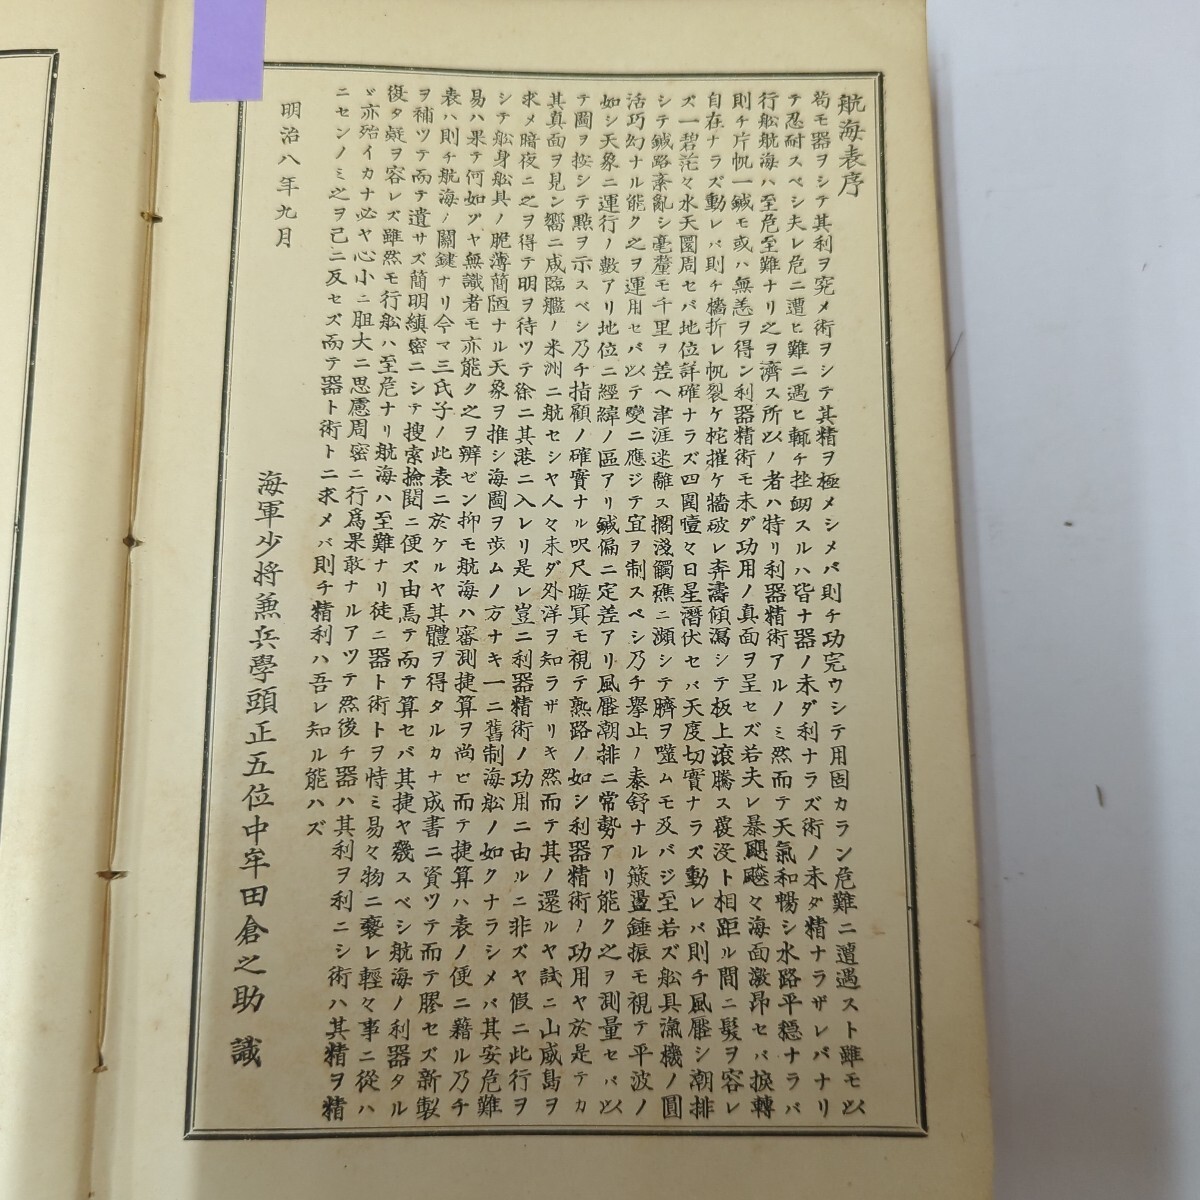 航海表序
苟モ器ヲシテ其利ヲ究メ術ヲシテ其精ヲ極メシメバ則チ功完ウシテ用固カラン危難ニ遭遇スト雖モ以
テ忍耐スベシ夫レ危ニ遭ヒ難ニ遇ヒ輒チ挫衂スルハ皆ナ器ノ未ダ利ナラズ術ノ未ダ精ナラザレバナリ
行舩航海ハ至危至難ナリ之ヲ濟ス所以ノ者ハ特リ利器精術アルノミ然而テ天氣和暢シ水路平穏ナラバ
則チ片帆一鍼モ或ハ無恙ヲ得ン利器精術モ未ダ功用ノ真面ヲ呈セズ若夫レ暴颶飈々海面激昂セバ捩轉
自在ナラズ動レバ則チ檣折レ帆裂ケ柁摧ケ牆破レ奔濤傾瀉シテ板上滾騰ス覆没ト相距ル間ニ髪ヲ容レ
ズ一碧茫々水天圜周セバ地位詳確ナラズ四圍曀々日星潛伏セバ天度切實ナラズ動レバ則チ風壓シ潮排
シテ鍼路紊亂シ毫釐モ千里ヲ差ヘ津涯迷離ス擱淺觸礁ニ瀕シテ臍ヲ噬ムモ及バジ至若ズ舩具滊機ノ圓
活巧幻ナル能ク之ヲ運用セバ以テ變ニ應ジテ宜ヲ制スベシ乃チ擧止ノ泰舒ナル簸盪錘振モ視テ平波ノ
如シ天象ニ運行ノ數アリ地位ニ經緯ノ區アリ鍼偏ニ定差アリ風壓潮排ニ常勢アリ能ク之ヲ測量セバ以
テ圖ヲ按シテ點ヲ示スベシ乃チ指顧ノ確實ナル呎尺晦冥モ視テ熟路ノ如シ利器精術ノ功用ヤ於是テカ
其真面ヲ見ン嚮ニ咸臨艦ノ米洲ニ航セシヤ人々未ダ外洋ヲ知ラザリキ然而テ其ノ還ルヤ試ニ山威島ヲ
求メ暗夜ニ之ヲ得テ明ヲ待ツテ徐ニ其港ニ入レリ是レ豈ニ利器精術ノ功用ニ由ルニ非ズヤ假ニ此行ヲ
シテ舩身舩具ノ脆薄簡陋ナル天象ヲ推シ海圖ヲ歩ムノ方ナキ一ニ舊制海舩ノ如クナラシメバ其安危難
易ハ果テ何如ゾヤ無識者モ亦能ク之ヲ辨ゼン抑モ航海ハ審測捷算ヲ尚ビ而テ捷算ハ表ノ便ニ藉ル乃チ
表ハ則チ航海ノ關鍵ナリ今マ三氏子ノ此表ニ於ケルヤ其體ヲ得タルカナ成書ニ資ツテ而テ膠セズ新製
ヲ補ツテ而テ遺サズ簡明縝密ニシテ搜索撿閲ニ便ズ由焉テ而テ算セバ其捷ヤ幾スベシ航海ノ利器タル
復タ疑ヲ容レズ雖然モ行舩ハ至危ナリ航海ハ至難ナリ徒ニ器ト術トヲ恃ミ易々物ニ褻レ輕々事ニ從ハ
ヾ亦殆イカナ必ヤ心小ニ胆大ニ思慮周密ニ行爲果敢ナルアツテ然後チ器ハ其利ヲ利ニシ術ハ其精ヲ精
ニセンノミ之ヲ己ニ反セズ而テ器ト術トニ求メバ則チ精利ハ吾レ知ル能ハズ
明治八年九月
海軍少将兼兵學頭正五位中牟田倉之助 識